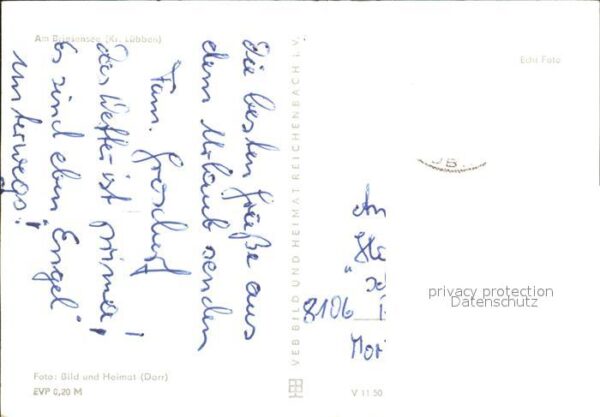 Am Briesensee (Kr. Lübben)
Die besten Grüße aus
dem Urlaub senden
Fam.
Das Wetter ist prima!
Es sind eben "Engel"
unterwegs!
Foto: Bild und Heimat (Darr)
EVP 0,20 M
VEB BILD UND HEIMAT REICHENBACH i. V.
V 11 50
Echt Foto
An
8106
privacy protection
Datenschutz